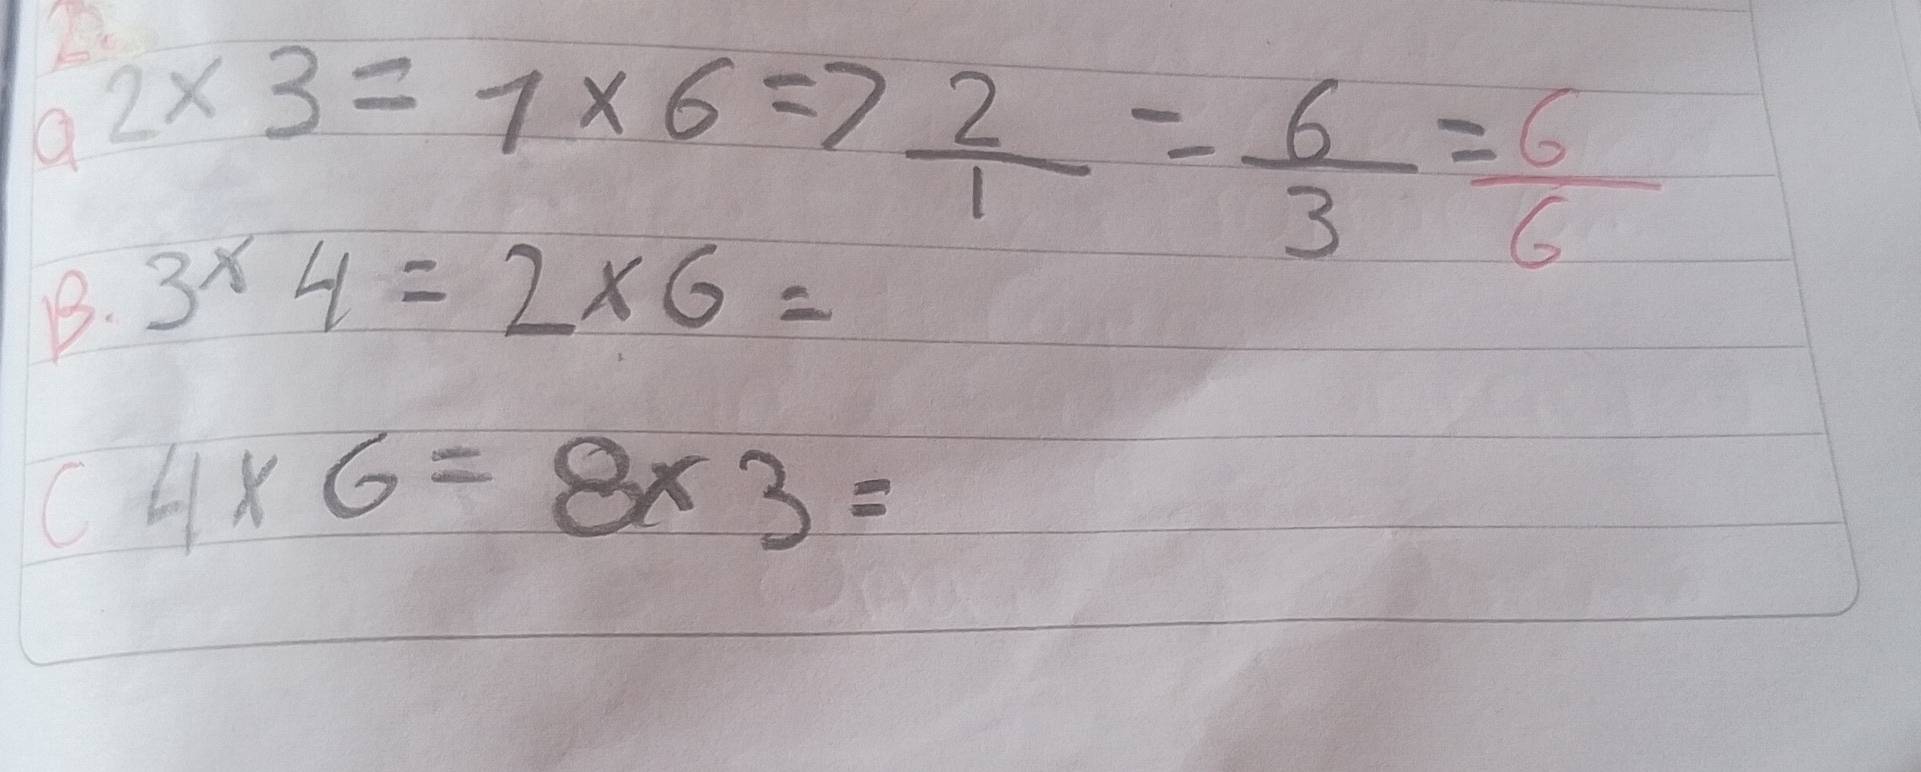 2.
a 2 × 3 = 1 × 6 => 2/1 = 6/3 = 6/6
B. 3 × 4 = 2 × 6 =
C 4 × 6 = 8 × 3 =